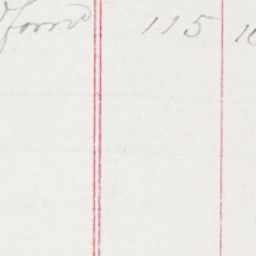 forrd 115 10